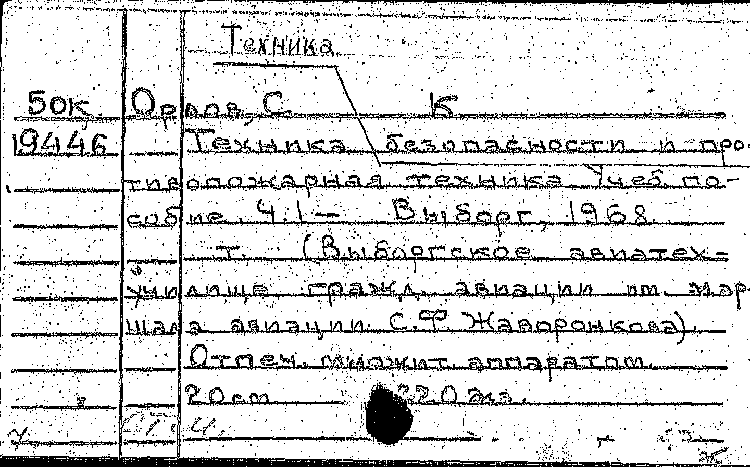 Техника
Бок Орлов, С. К
19446 Техника безопасности и про-
тивопожарная техника. Учеб. по-
собие. Ч.1— Выборг, 1968.
т. (Выборгское авиатех-
училище гражд. авиации им. мар-
шала авиации С.Ф. Жаворонкова).
Отпеч. множит. аппаратом.
20 см 220 экз.